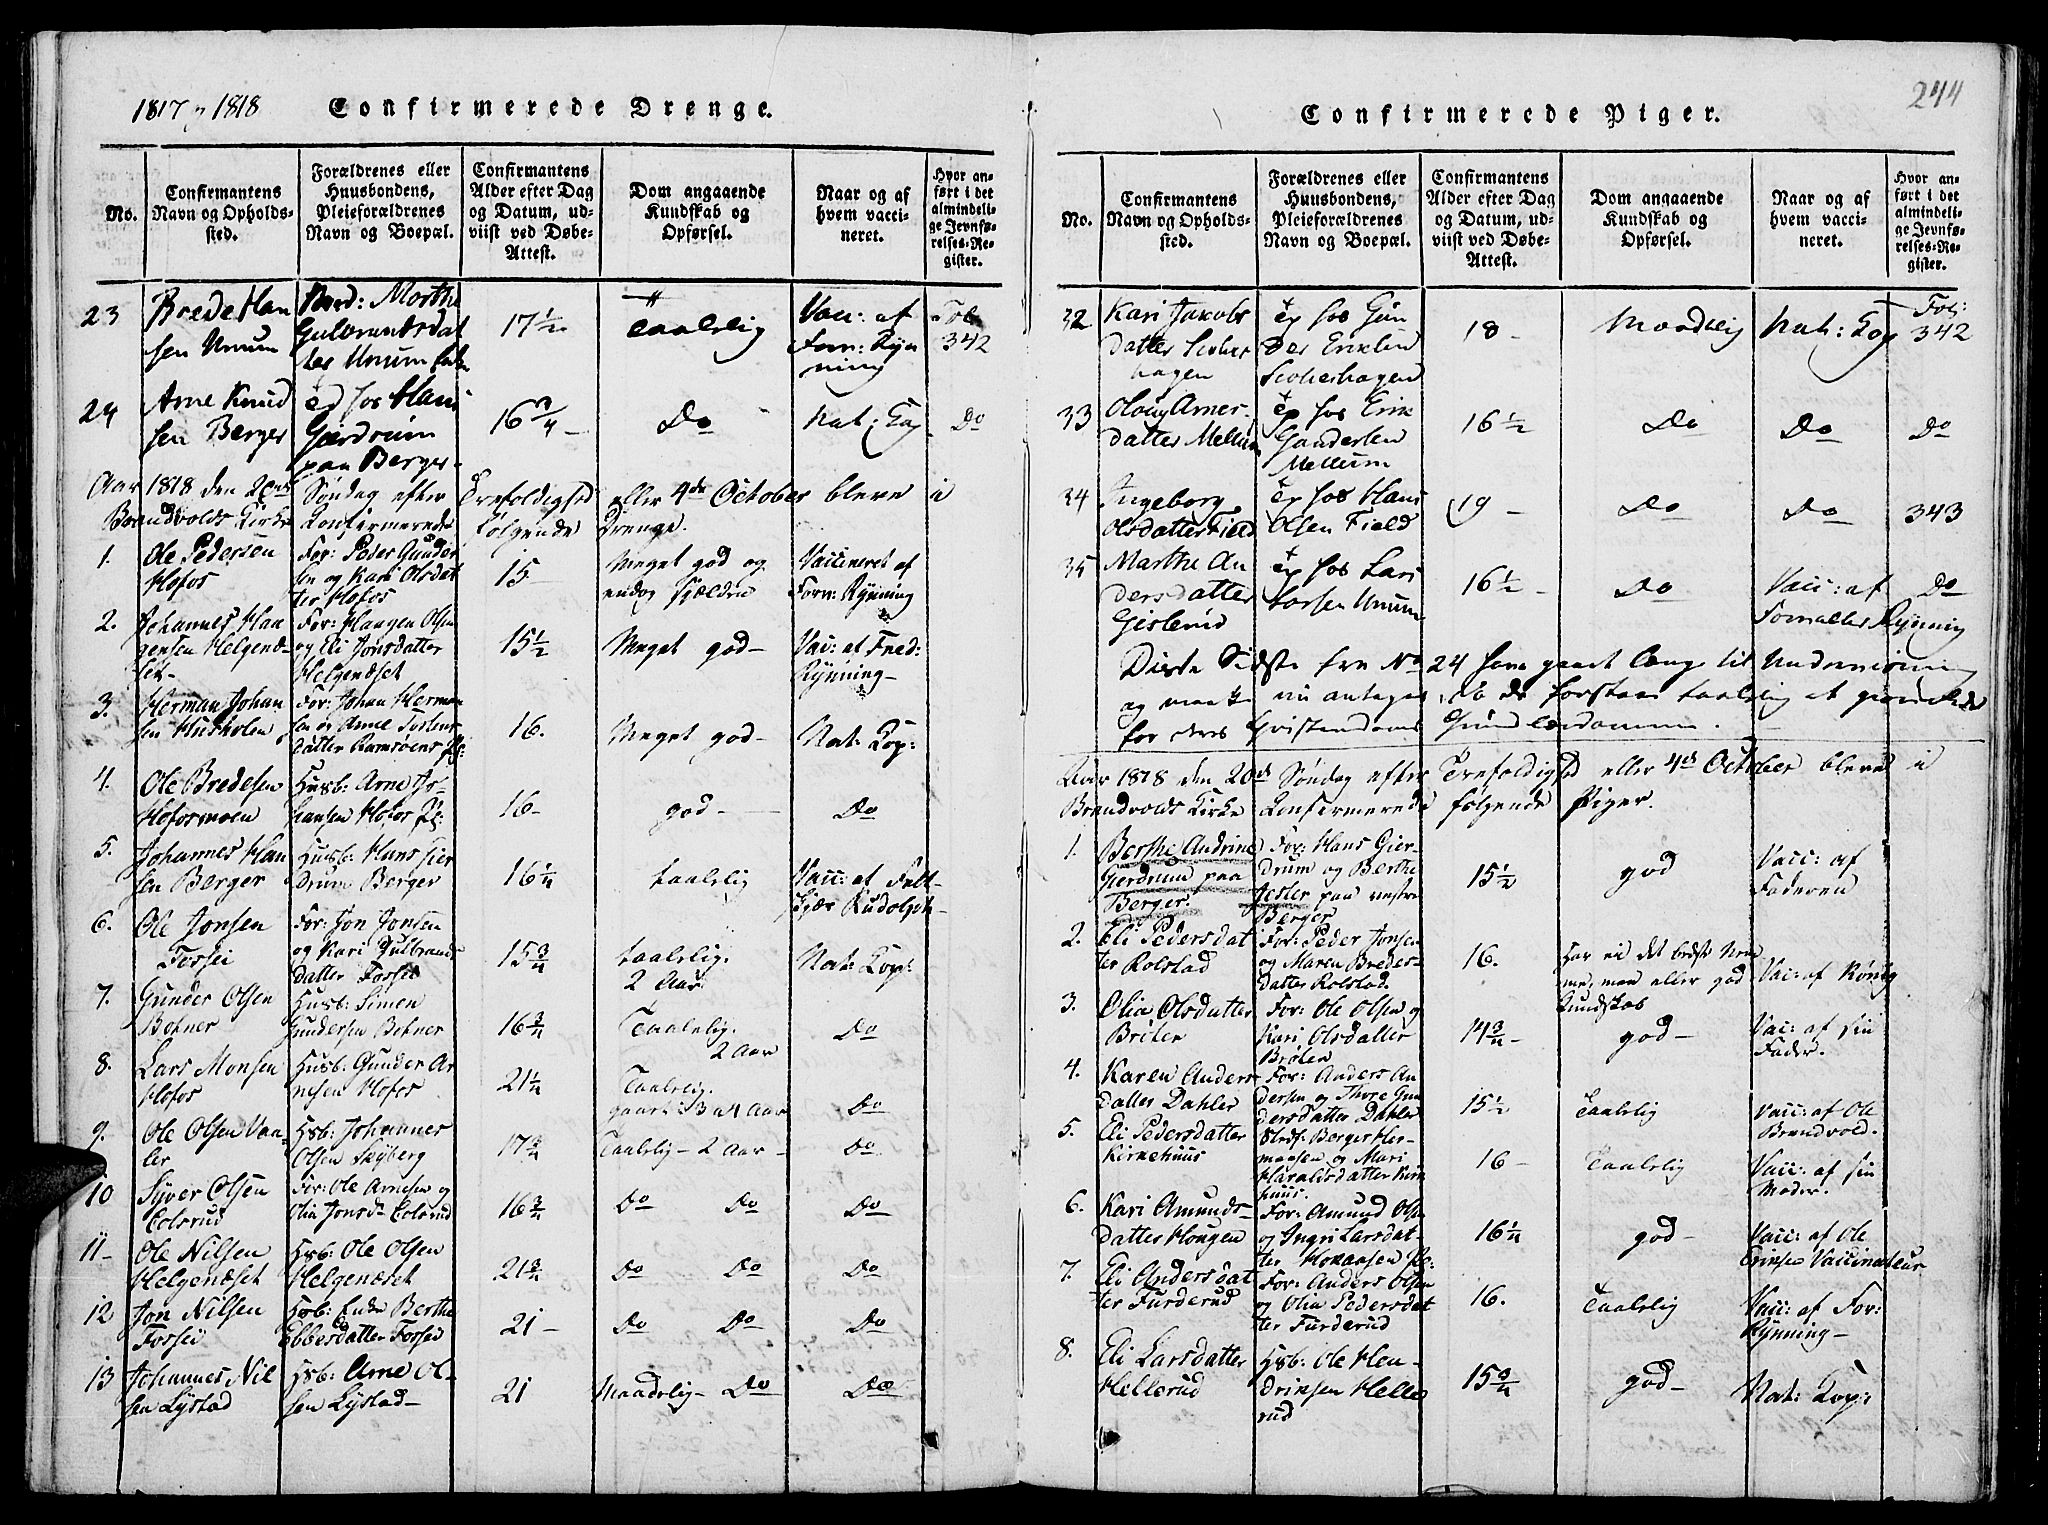 1817 & 1818 Confirmerede Drenge.
No.
Confirmantens
Navn og Opholds-
sted.
Forældrenes eller
Huusbondens,
Pleieforældrenes
Navn og Boepæl.
Confirmantens
Alder efter Dag
og Datum, ud-
viist ved Døbe-
Attest.
Dom angaaende
Kundskab og
Opførsel.
Naar og af
hvem vacci-
neret.
Hvor an-
ført i det
almindeli-
ge Jevnfø-
relses-Re-
gister.
23
Brede Han
sen Unum
Marthe
Gulbrandsdat
ter Unum
17 1/2
taalelig
Vac: af
Forv: Ryn
ning
Fol.
342
24
Arne Knud
sen Berger
hos Hans
Gierdrum
paa Berger
16 3/4
Do
Nat: Kop
Do
Aar 1818 den 20de Søndag efter Trefoldighed eller 4de October bleve i
Brandvolds Kirke Konfirmerede følgende Drenge.
1.
Ole Pedersen
Hofos
For: Peder Gunder
sen og Kari Olsdat
ter Hofos
15
Meget god og
endog sjælden
Vaccineret af
Forv: Rynning
2.
Johannes Hau
gensen Helgenæ-
set
For: Haugen Olsen
og Eli Jonsdatter
Helgenæset
15 1/2
Meget god
Vac: af
Rynning
3.
Herman Johan
sen
For: Johan Herman
sen og Arne
datter
16.
Meget god
Nat: Kop:
4.
Ole Bredesen
Hofosmoen
Husb: Arne Jo-
hansen Hofos
16
god
Do
5.
Johannes Han
sen Berger
Husb: Hans Gier
drum Berger
16 1/4
taalelig
Vacc: af Felt-
skjær Rudolph
6.
Ole Jonsen
Forsei
For: Jon Jonsen
og Kari Gulbrands
datter Forsei
15 3/4
taalelig.
2 Aar
Nat: Kop:
7.
Gunder Olsen
Bohner
Husb: Simen
Gundersen Bohner
16 3/4
Taalelig.
2 Aar
Do
8.
Lars Monsen
Hofos
Husb: Gunder Ar
nesen Hofos
21 1/4
Taalelig.
gaaet 3 a 4 Aar
Do
9.
Ole Olsen Vaa-
ler
Hsb: Johannes
Olsen Skyberg
17 3/4
Taalelig 2 Aar
Do
10
Syver Olsen
Colsrud
For: Ole Arnesen og
Olia Jonsd Colsrud
16 3/4
Do Do
Do
11
Ole Nilsen
Helgenæset
Hsb: Ole Olsen
Helgenæset
21 3/4
Do Do
Do
12
Jon Nilsen
Forsei
Hsb: Enke Berthe
Ebbesdatter Forsei
21
Do Do
Do
13
Johannes Nil
sen Lystad
Hsb: Arne Ol-
sen Lystad
21
Maadelig Do
Do
244
Confirmerede Piger.
No.
Confirmantens
Navn og Opholds-
sted.
Forældrenes eller
Huusbondens,
Pleieforældrenes
Navn og Boepæl.
Confirmantens
Alder efter Dag
og Datum, ud-
viist ved Døbe-
Attest.
Dom angaaende
Kundskab og
Opførsel.
Naar og af
hvem vacci-
neret.
Hvor an-
ført i det
almindeli-
ge Jevnfø-
relses-Re-
gister.
32
Kari Jakobs
datter
hagen
er hos Gun
der
18
Maadelig
Nat: Kop
Fol:
342
33
Oloug Arnes-
datter Mellum
er hos Erik
Gundersen
Mellum
16 1/2
Do
Do
Do
34
Ingeborg
Olsdatter Field
er hos Hans
Olsen Field
19
Do
Do
343
35
Marthe An
dersdatter
Gislerud
er hos Lars
Larsen Unum
16 1/2
Do
Vacc: af
Forvalter Rynning
Do
Disse Sidste fra No 24 have gaaet længe til Underviisning
og maatte nu antages, da de forstaae taalelig at giøre Rede
for deres Christendoms Grundlærdomme.
Aar 1818 den 20de Søndag efter Trefoldighed eller 4de October bleve i
Brandvolds Kirke Konfirmerede følgende Piger.
1.
Berthe Andrine
Gierdrum paa
Berger.
For: Hans Gier-
drum og Berthe
Jesler paa vestre
Berger
15 1/2
god
Vacc: af
Faderen
2.
Eli Pedersdat
ter Rolstad
For: Peder Jonsen
og Maren Bredes-
datter Rolstad.
16.
Har ei det bedste Nem
me, men eller god
Kundskab
Vac: af König
3.
Olia Olsdatter
Bråten
For: Ole Olsen og
Kari Olsdatter
Bråten
14 3/4
god
Vac: af sin
Fader.
4.
Karen Anders
datter Dahler
For: Anders An
dersen og Thore Gun
dersdatter Dahler
15 1/2
Taalelig
Vacc: af Ole
Brandvold.
5.
Eli Pedersdatter
Kirkehuus
Berger Her-
mansen og Mari
Haraldsdatter Kirk
huus.
16
Taalelig
Vacc: af sin
Moder.
6.
Kari Amunds-
datter Hougen
For: Amund Olsen
og Ingri Larsdat-
ter
16 1/4
god
Vacc: af Ole
Eriksen Vaccinateur
7.
Eli Andersdat
ter Furderud
For: Anders Olsen
og Olia Pedersdat
ter Furderud
16.
Taalelig
Vacc: af For:
Rynning
8.
Eli Larsdatter
Hellerud
Hsb: Ole Hen-
driksen Helle
rud
15 3/4
god
Nat: Kop: